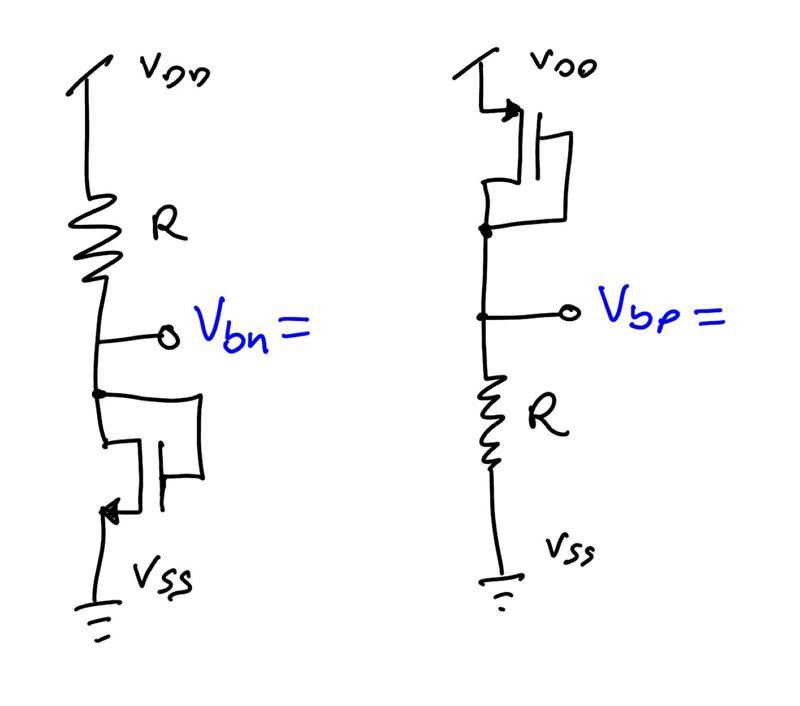 V_DD
R
V_bn =
V_SS
V_DD
V_bp =
R
V_SS